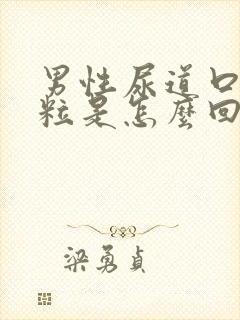 男性尿道口
粒是怎麼回
梁勇貞